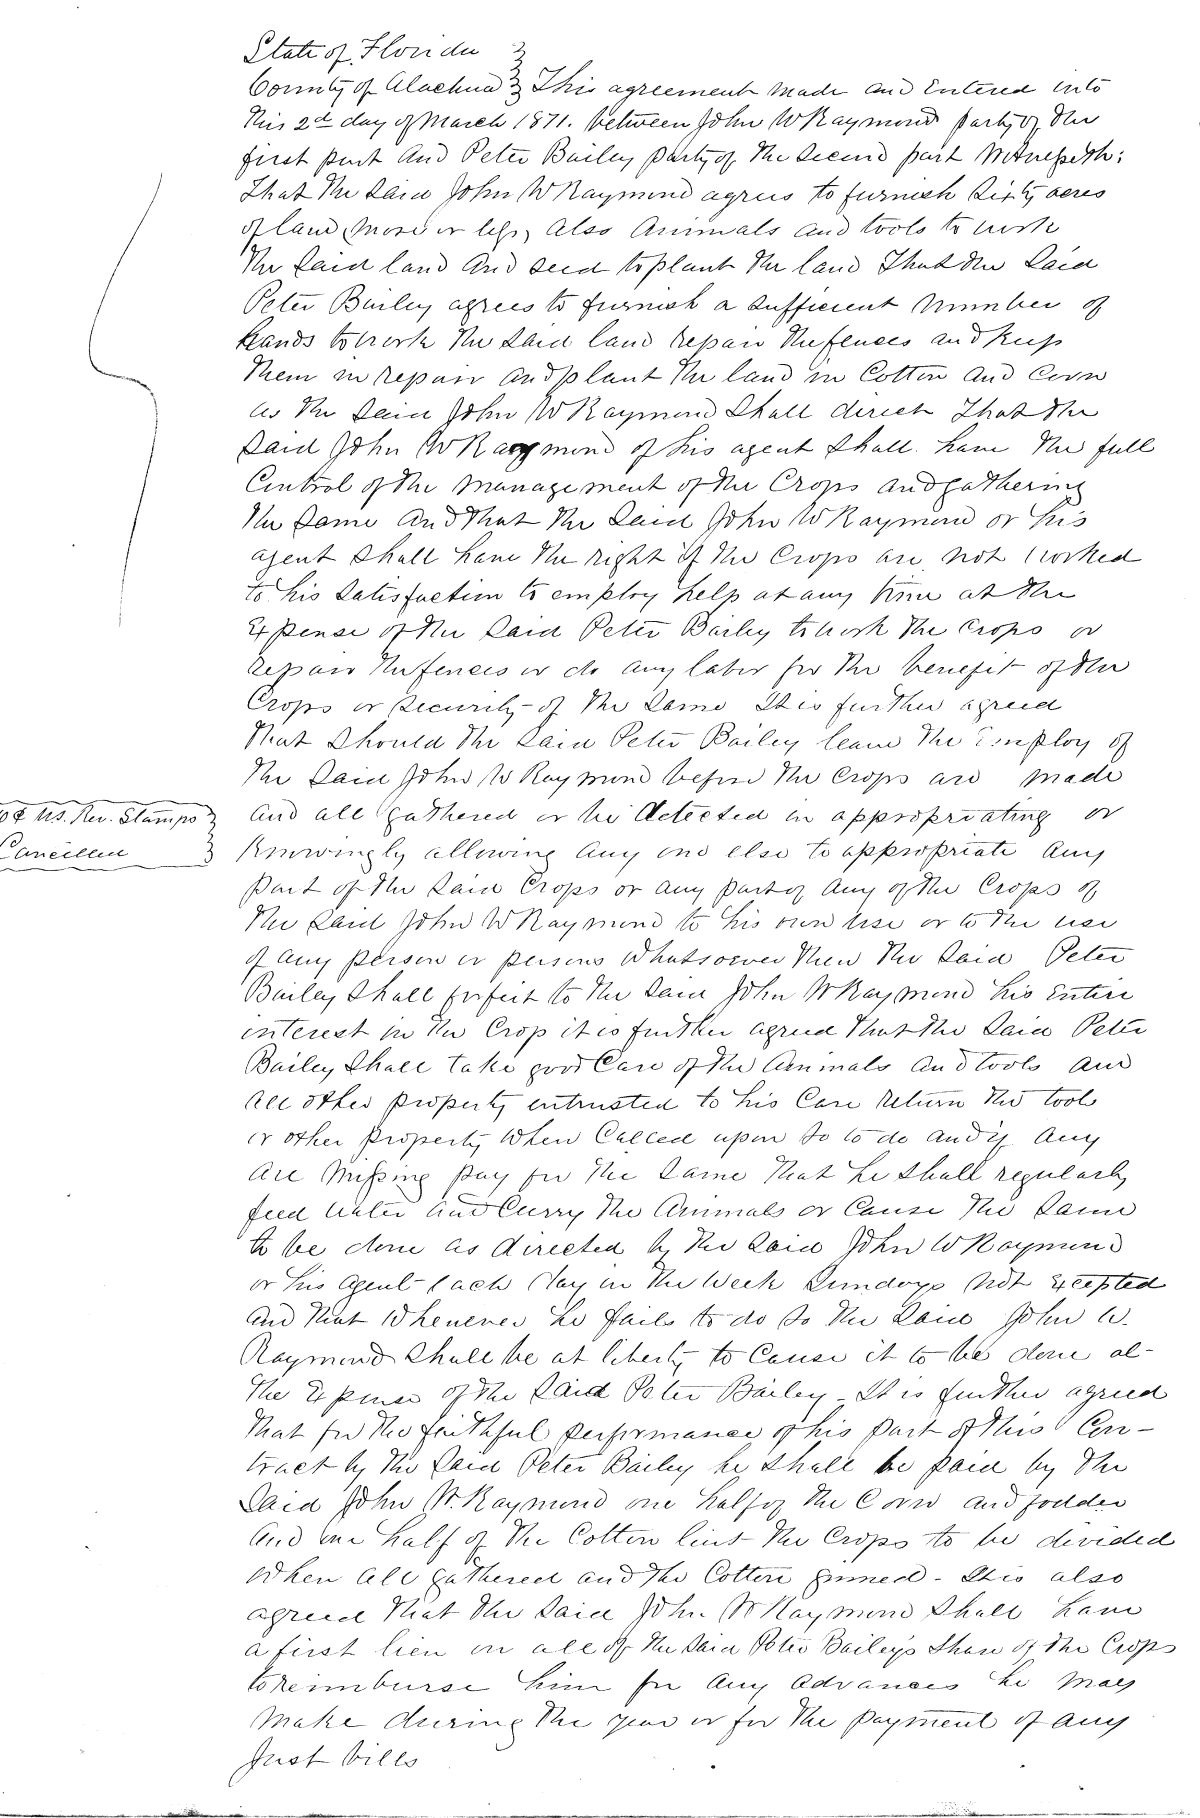 State of Florida
County of Alachua This agreement made and Entered into
this 2d day of March 1871. between John W Raymond party of the
first part And Peter Bailey party of the Second part Witnesseth:
That the Said John W Raymond agrees to furnish Sixty acres
of land, more or less, also Animals and tools to work
the Said land And seed to plant the land That the Said
Peter Bailey agrees to furnish a sufficient number of
hands to work the said land repair the fences and keep
them in repair and plant the land in Cotton and Corn
as the Said John W Raymond Shall direct That the
Said John W Raymond of his agent Shall have the full
Control of the Management of the Crops and gathering
the Same And that the Said John W Raymond or his
agent Shall have the right if the Crops are not worked
to his Satisfaction to employ help at any time at the
Expense of the Said Peter Bailey to work the Crops or
repair the fences or do any labor for the benefit of the
Crops or Security of the Same It is further agreed
that Should the Said Peter Bailey leave the Employ of
the Said John W Raymond before the Crops are made
and all gathered or be detected in appropriating or
Knowingly allowing any one else to appropriate any
part of the Said Crops or any part of any of the Crops of
the Said John W Raymond to his own use or to the use
of any person or persons Whatsoever then the Said Peter
Bailey Shall forfeit to the Said John W Raymond his Entire
interest in the Crop it is further agreed that the Said Peter
Bailey Shall take good Care of the Animals and tools and
all other property entrusted to his Care return the tools
or other property When Called upon So to do and if any
are Missing pay for the Same That he Shall regularly
feed water and Curry the Animals or Cause the Same
to be done as directed by the Said John W Raymond
or his agent each day in the Week Sundays not Excepted
and that Whenever he fails to do So the Said John W.
Raymond Shall be at liberty to Cause it to be done at
the Expense of the Said Peter Bailey - It is further agreed
that for the faithful performance of his part of this Con-
tract by the Said Peter Bailey he Shall be paid by the
Said John W. Raymond one half of the Corn and fodder
and one half of the Cotton lint the Crops to be divided
When all gathered and the Cotton ginned - It is also
agreed that the Said John W Raymond Shall have
a first lien on all of the Said Peter Bailey's Share of the Crops
to reimburse him for any advances he may
make during the year or for the payment of any
Just bills
0¢ US. Rev. Stamps
Cancelled